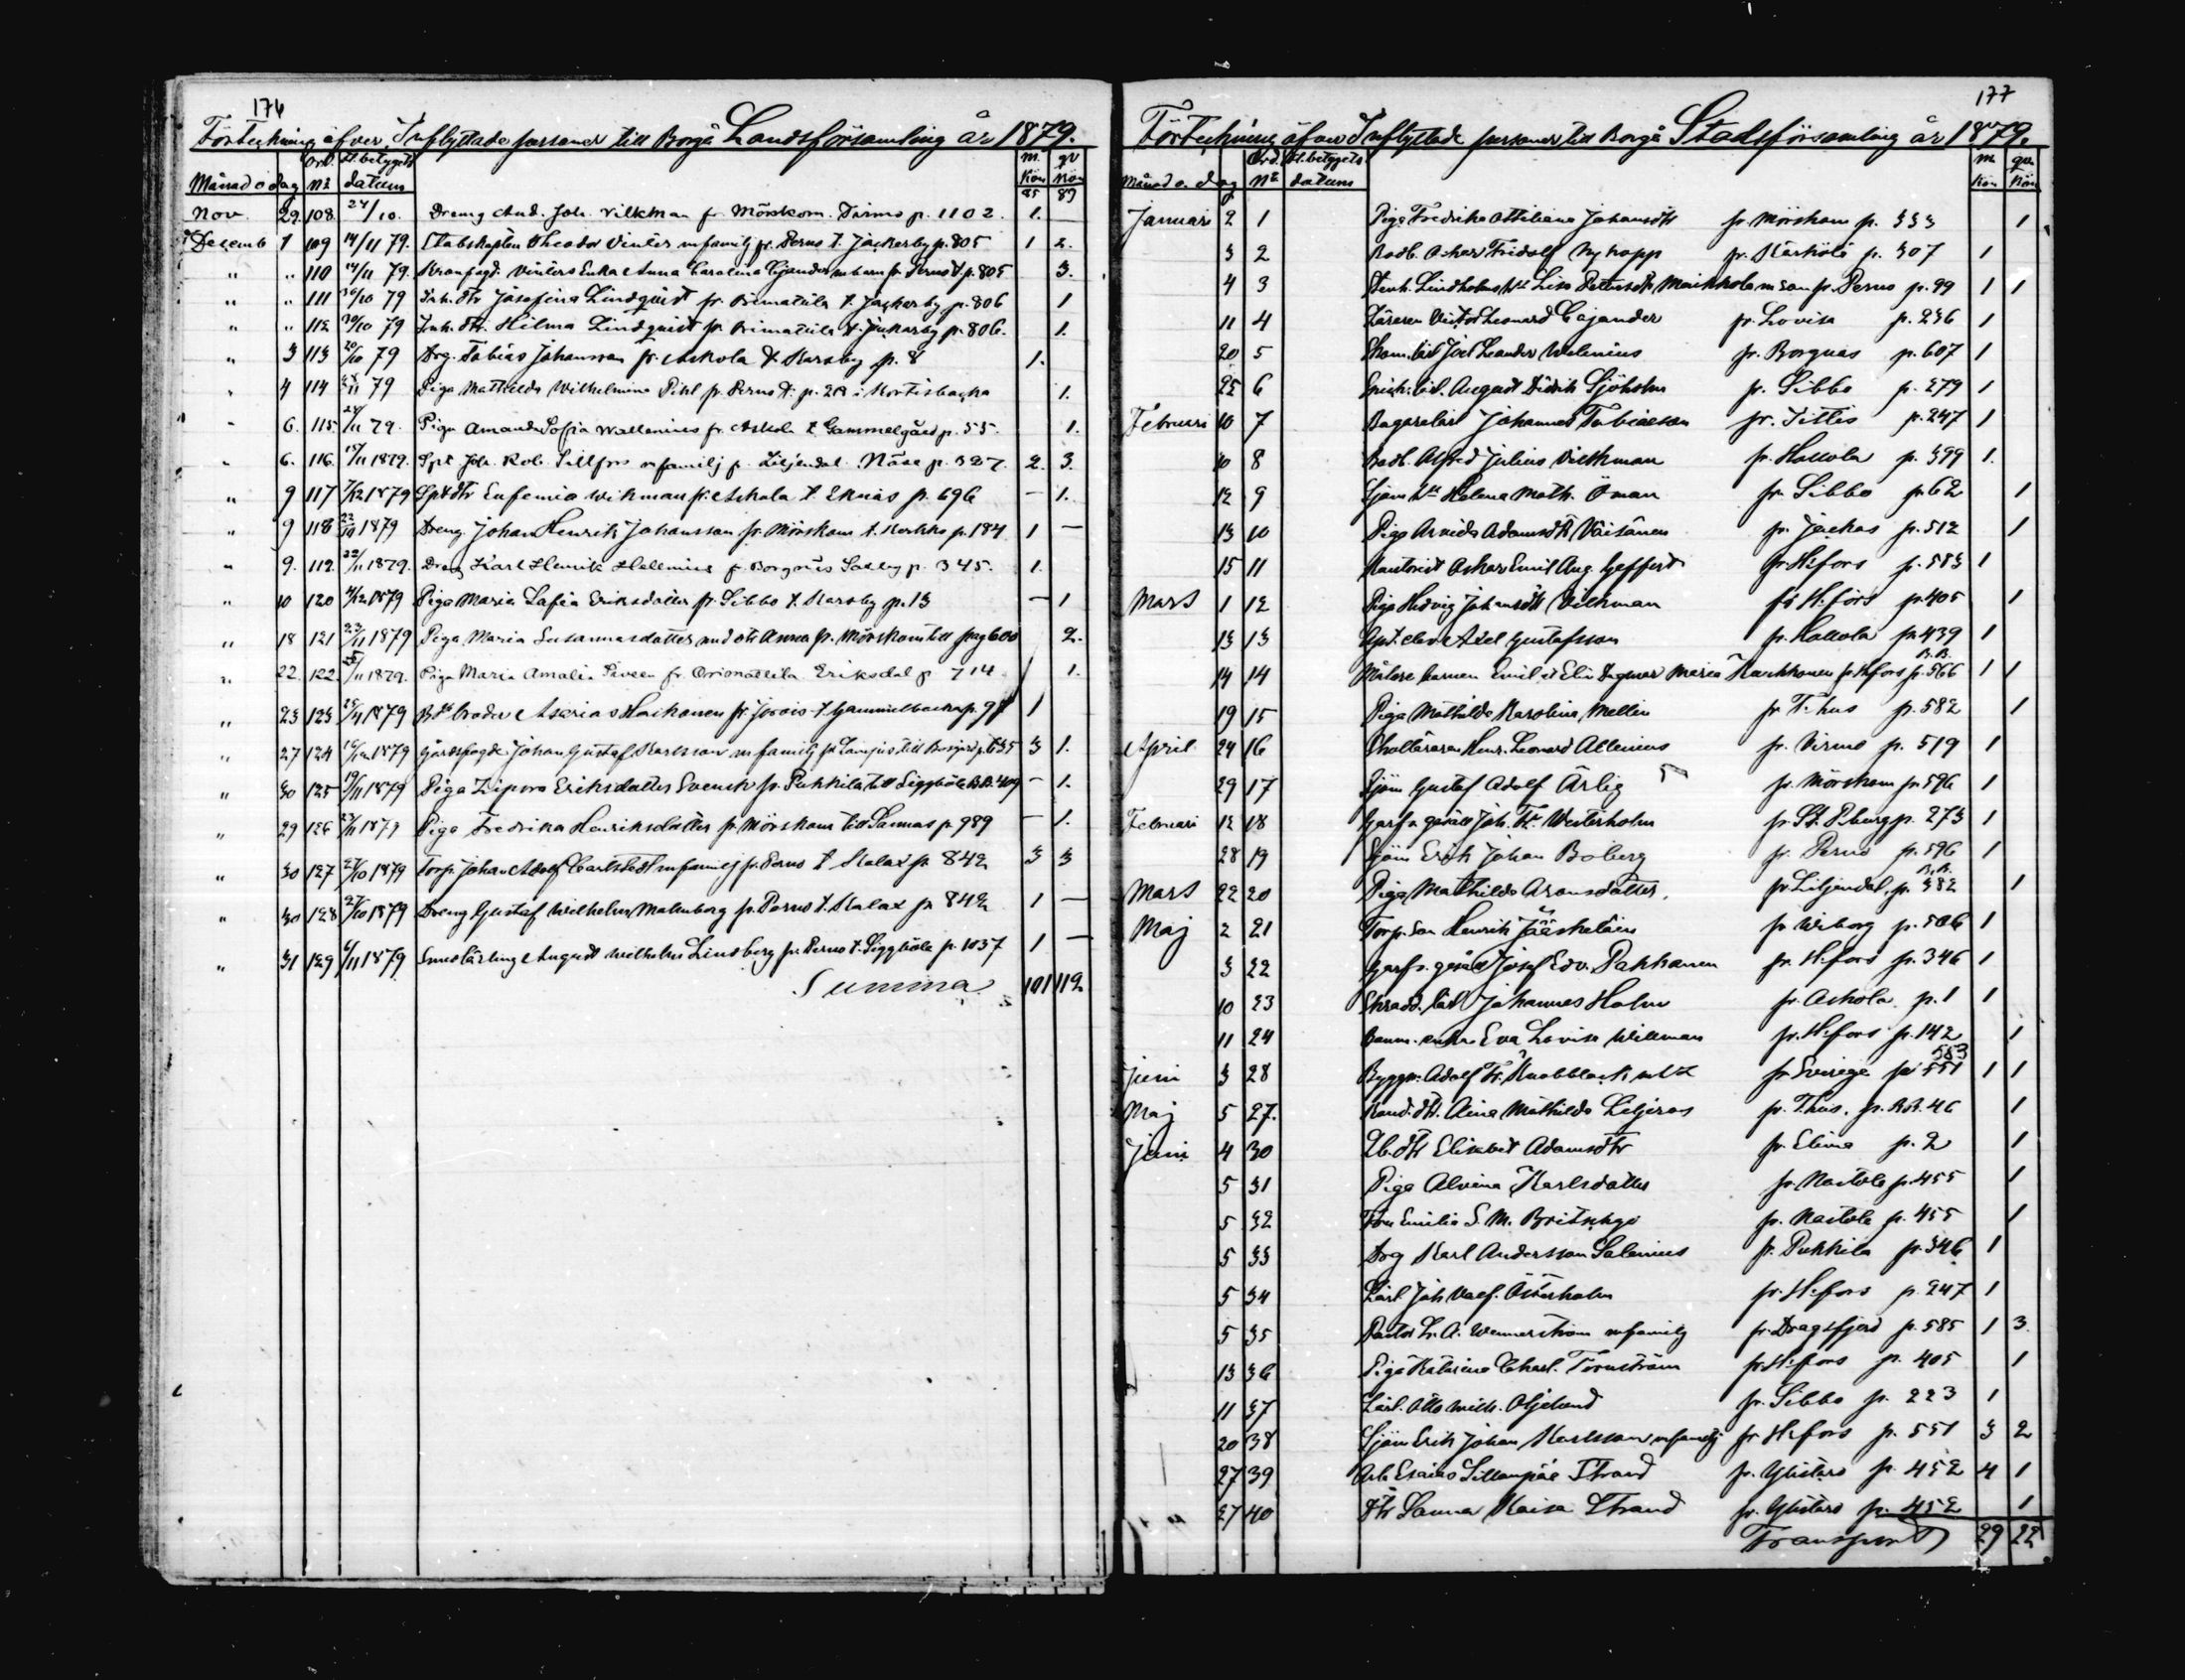 176
Förteckning öfver Inflyttade personer till Borgå Landsförsamling år 1879.
Månad o dag Ord. No fl. betygets datum m. kön qv kön
85 89
Nov. 29. 108. 24/10. Dreng And. Joh. Vilkman fr. Mörskom. Tirmo p. 1102. 1. —
Decemb 1 109 14/11 79. Stabskapten Theodor Vinter m familj fr. Perno t. Jackarby p. 805 1 2.
" " 110 14/11 79. Kronfogd. Vinters Enka Anna Carolina Cajander m barn fr Perno t p. 805 3.
" " 111 30/10 79 Inh. dtr Josefina Lindquist fr. Orimattila t. Jackarby p. 806 1
" " 112 30/10 79 Inh. dtr. Hilma Lindquist fr. Orimattila t. Jackarby p. 806. 1.
" 3 113 20/10 79 Drg. Tobias Johansson fr. Askola t. Karsby p. 8 1.
" 4 114 79 Piga Mathilda Wilhelmina Pihl fr. Perno t. p. 28 i Kortisbacka 1.
" 6. 115. 24/11 79. Piga Amanda Sofia Wallenius fr. Askola t Gammelgård p. 55. 1.
" 6. 116. 15/11 1879. Spt. Joh. Rob. Sillfors m familj fr. Liljendal Näse p. 327. 2. 3.
" 9 117 7/12 1879 Spt dtr Eufemia Wikman fr. Askola t. Eknäs p. 696 — 1.
" 9 118 22/10 1879 Dreng Johan Henrik Johansson fr. Mörskom t. Kerkko p. 184 1 —
" 9. 119. 22/11 1879. Dreng Karl Henrik Hellenius fr. Borgnäs Saxby p. 345. 1.
" 10 120 4/12 1879 Piga Maria Sofia Eriksdotter fr. Sibbo t. Karsby p. 13 — 1
" 18 121 23/11 1879 Piga Maria Susannasdotter med dtr Anna fr. Mörskom till pag 600 2.
" 22. 122. /11 1879. Piga Maria Amalia Paveen fr. Orimattila Eriksdal p 714 1.
" 23 123 25/4 1879 Bds broder Asarias Haikonen fr. Jorois t. Gammelbacka p. 97 1
" 27 124 1879 Gårdsfogde Johan Gustaf Karlsson m familj fr. Lampis till Borgård p. 635 3 1.
" 30 125 19/11 1879 Piga Zipora Eriksdotter Svensk fr. Pukkila till Siggböle B.B. 409 — 1.
" 29 126 27/11 1879 Piga Fredrika Henriksdotter fr. Mörskom till Sannas p. 989 — 1.
" 30 127 27/10 1879 Torp. Johan Adolf Carlstedt m familj fr. Perno t Kalax p. 842 3 3
" 30 128 27/10 1879 Dreng Gustaf Wilhelm Malmberg fr. Perno t. Kalax p. 842 1 —
" 31 129 6/11 1879 Smedlärling August Wilhelm Lindberg fr. Perno t. Siggböle p. 1037 1 —
Summa 101 112
177
Förteckning öfver Inflyttade personer till Borgå Stadsförsamling år 1879.
Månad o. dag Ord. No fl. betygets datum m kön qv. kön
Januari 2 1 Piga Fredrika Ottiliana Johansdtr fr. Mörskom p. 333 1
3 2 Bodb. Oskar Fridolf Nykopp fr. Kärkölä p. 307 1
4 3 Stenh. Lindholms hu Lisa Pettersdtr Maikkola m son fr. Perno p. 99 1 1
11 4 Läraren Victor Leonard Cajander fr. Lovisa p. 236 1
20 5 Skom. lärl Joel Leander Walenius fr. Borgnäs p. 607 1
25 6 Snick. lärl. August Didrik Sjöholm fr. Sibbo p. 279 1
Februari 10 7 Bagarelärl Johannes Tobiasson fr. Iittis p. 247 1
10 8 Bodb. Alfred Julius Vickman fr. Hollola p. 399 1.
12 9 Sjöm. hu Helena Math. Öman fr. Sibbo p. 62 1
13 10 Piga Arvida Adamsdtr Väisänen fr. Jockas p. 512 1
15 11 Kantorist Oskar Emil Aug. Geffert fr. H:fors p. 583 1
Mars 1 12 Piga Hedvig Johansdtr Vickman fr H:fors p. 405 1
13 13 Spt. elev Axel Gustafsson fr. Hollola p. 439 1
14 14 Målare barnen Emil o Elin Dagmar Maria Kaukkonen fr H:fors p. B.B. 366 1 1
19 15 Piga Mathilda Karolina Mellin fr T. hus p. 582 1
April 24 16 Skolläraren Henr. Leonard Allenius fr. Virmo p. 519 1
29 17 Sjöm Gustaf Adolf Ärlig fr. Mörskom p. 596 1
Februari 12 18 Garfv. gesäll Joh. Fr. Westerholm fr. St. P:burg p. 273 1
28 19 Sjöm Erik Johan Boberg fr. Perno p. 596 1
Mars 22 20 Piga Mathilda Aronsdotter. fr Liljendal p. B.B. 382 1
Maj 2 21 Torp. son Henrik Jääskeläin fr Wiborg p. 506 1
3 22 Garfv. gesäll Josef Edv. Pakkanen fr. H:fors p. 346 1
10 23 Skradd. lärl Johannes Holm fr. Askola p. 1 1
11 24 Enka Eva Lovisa Willman fr. H:fors p. 142 1
Juni 3 28 Byggm. Adolf Fr. Knobblock m hu fr Sverige p. 551 553 1 1
Maj 5 27. Kand. dtr. Aina Mathilda Liljeros fr. T.hus. p. B.B. 46 1
Juni 4 30 Lb. dtr Elisabet Adamsdtr fr. Elimä p. 2 1
5 31 Piga Alvina Karlsdotter fr. Nastola p. 455 1
5 32 Fru Emilia S. M. Britschgi fr. Nastola p. 455 1
5 33 Drg Karl Andersson Salenius fr. Pukkila p. 346 1
5 34 Lärl. Joh Valf. Österholm fr. H:fors p. 247 1
5 35 Pastor Fr. A. Wennerström m familj fr. Dragsfjerd p. 585 1 3
13 36 Piga Katarina Charl. Törnström fr. H:fors p. 405 1
11 37 Lärl. Otto Wilh. Öljelund fr. Sibbo p. 223 1
20 38 Sjöm Erik Johan Karlsson m familj fr H:fors p. 551 3 2
27 39 Arb Esaias Sillanpää Strand fr. Ylistaro p. 452 4 1
27 40 Dtr Sanna Kaisa Strand fr. Ylistaro p. 452 1
Transport 29 22